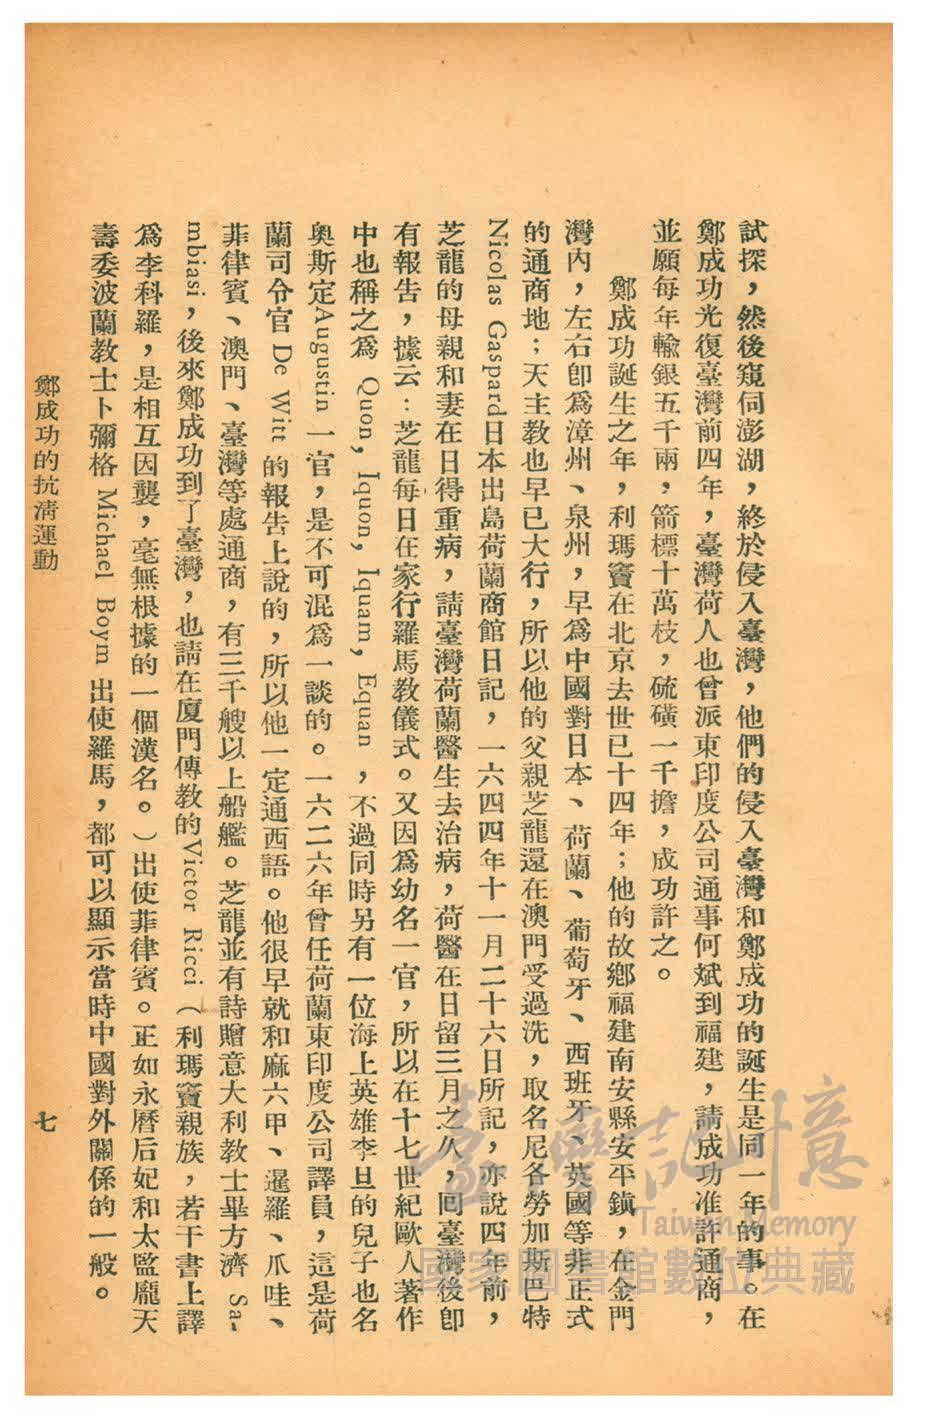 試探，然後窺伺澎湖，終於侵入臺灣，他們的侵入臺灣和鄭成功的誕生是同一年的事。在
鄭成功光復臺灣前四年，臺灣荷人也曾派東印度公司通事何斌到福建，請成功准許通商，
並願每年輸銀五千兩，箭標十萬枝，硫磺一千擔，成功許之。
鄭成功誕生之年，利瑪竇在北京去世已十四年；他的故鄉福建南安縣安平鎮，在金門
灣內，左右卽爲漳州、泉州，早爲中國對日本、荷蘭、葡萄牙、西班牙、英國等非正式
的通商地；天主教也早已大行，所以他的父親芝龍還在澳門受過洗，取名尼各勞加斯巴特
Nicolas Gaspard日本出島荷蘭商館日記，一六四四年十一月二十六日所記，亦說四年前，
芝龍的母親和妻在日得重病，請臺灣荷蘭醫生去治病，荷醫在日留三月之久，囘臺灣後卽
有報告，據云：芝龍每日在家行羅馬教儀式。又因爲幼名一官，所以在十七世紀歐人著作
中也稱之爲 Quon, Iquon, Iquam, Equan，不過同時另有一位海上英雄李旦的兒子也名
奧斯定Augustin一官，是不可混爲一談的。一六二六年曾任荷蘭東印度公司譯員，這是荷
蘭司令官 De Witt 的報告上說的，所以他一定通西語。他很早就和麻六甲、暹羅、爪哇、
菲律賓、澳門、臺灣等處通商，有三千艘以上船艦。芝龍並有詩贈意大利教士畢方濟 Sa-
mbiasi，後來鄭成功到了臺灣，也請在廈門傳教的Victor Ricci（利瑪竇親族，若干書上譯
爲李科羅，是相互因襲，毫無根據的一個漢名。）出使菲律賓。正如永曆后妃和太監龐天
壽委波蘭教士卜彌格 Michael Boym 出使羅馬，都可以顯示當時中國對外關係的一般。
鄭成功的抗清運動
七
臺灣記憶
Taiwan Memory
國家圖書館數位典藏